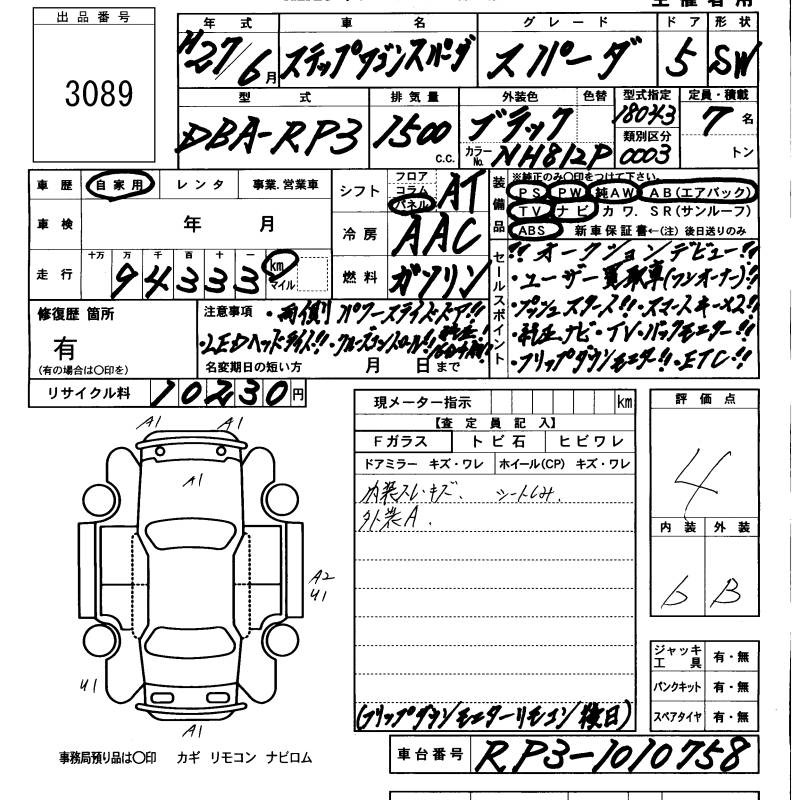 出品番号
3089
年式 車名 グレード ドア 形状
H27/6月 ステップワゴンスパーダ スパーダ 5 SW
型式 排気量 外装色 色替 型式指定 定員・積載
DBA-RP3 1500 c.c. ブラック 18043 7名
カラーNo. NH812P 類別区分 0003 トン
車歴 自家用 レンタ 事業.営業車
シフト フロア コラム パネル AT
車検 年 月
冷房 AAC
走行 十万 万 千 百 十 一
94333 km マイル
燃料 ガソリン
装備品 ※純正のみ〇印をつけて下さい。
PS PW 純AW AB(エアバック)
TV ナビ カワ. SR(サンルーフ)
ABS 新車保証書←(注) 後日送りのみ
セールスポイント
!! オークションデビュー!!
・ユーザー買取車(ワンオーナー)!!
・プッシュスタート!!・スマートキー×2!!
・純正ナビ・TV・バックモニター!!
・フリップダウンモニター!!・ETC!!
修復歴 箇所
有
(有の場合は〇印を)
注意事項 ・両側パワースライドドア!!
・LEDヘッドライト!!・クルーズコントロール!!
名変期日の短い方 月 日まで
リサイクル料 10230円
現メーター指示 km
【査定員記入】
Fガラス トビ石 ヒビワレ
ドアミラー キズ・ワレ ホイール(CP) キズ・ワレ
内装スレ・キズ. シートしみ.
外装A.
(フリップダウンモニターリモコン後日)
評価点
4
内装 外装
b B
ジャッキ工具 有・無
パンクキット 有・無
スペアタイヤ 有・無
A1 A1
A1
A2
U1
U1
A1
事務局預り品は〇印 カギ リモコン ナビロム
車台番号 RP3-1010758